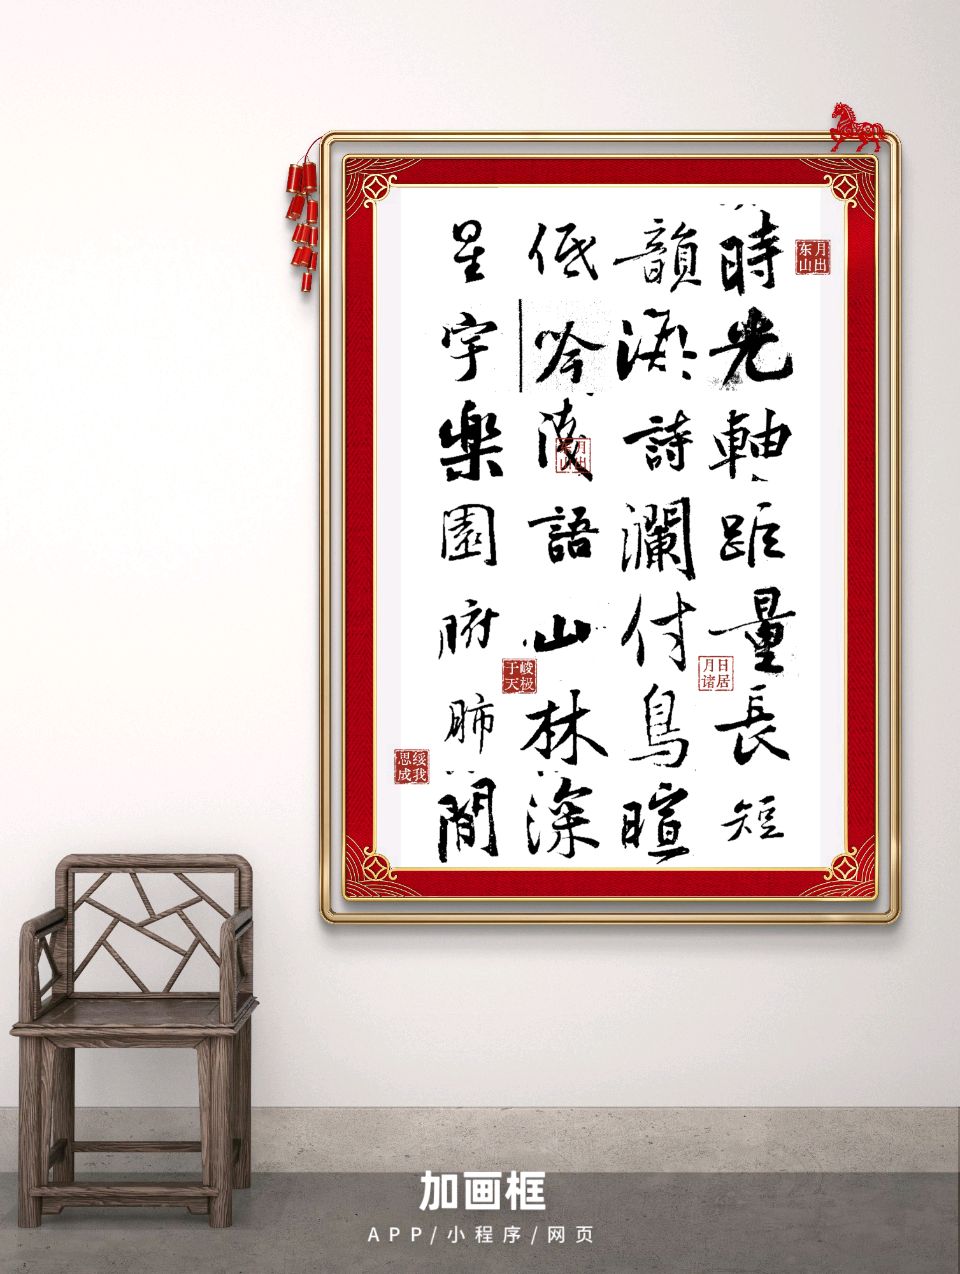 時光軸距量長短
韻詩瀾付鳥暄
低吟浅語山林深
星宇樂園腑肺間
月出东山
日居月诸
月出东山
峻极于天
绥我思成
加画框
APP/小程序/网页